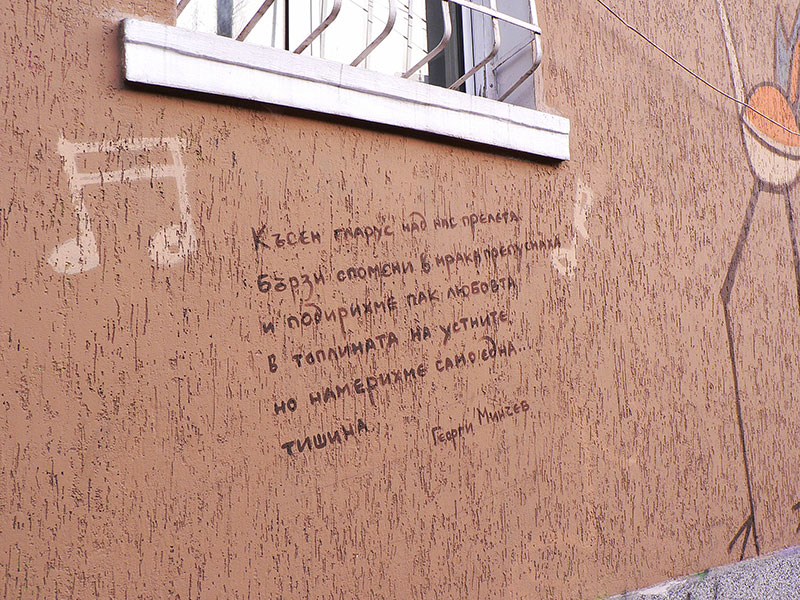 Късен гларус над нас прелетя
бързи спомени в мрака препуснаха
и подирихме пак любовта
в топлината на устните,
но намерихме само една...
тишина.
Георги Минчев